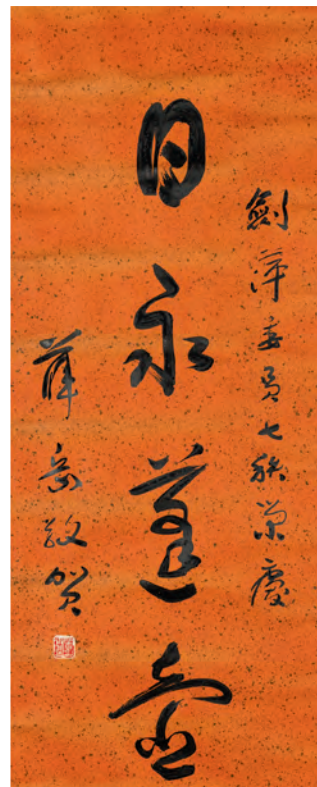 劍萍委員七秩榮慶
日永蓬壺
薛岳敬賀